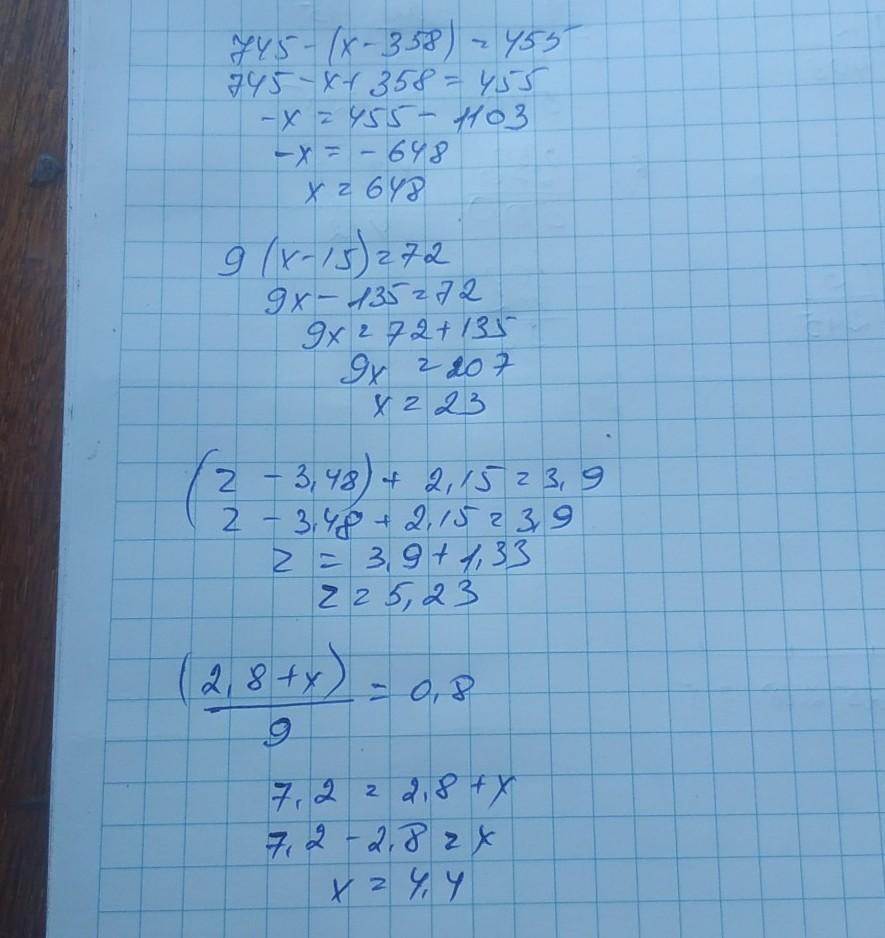 745 - (x - 358) = 455
745 - x + 358 = 455
-x = 455 - 1103
-x = - 648
x = 648
9 (x - 15) = 72
9x - 135 = 72
9x = 72 + 135
9x = 207
x = 23
(z - 3,48) + 2,15 = 3,9
z - 3,48 + 2,15 = 3,9
z = 3,9 + 1,33
z = 5,23
(2,8 + x) = 0,8
9
7,2 = 2,8 + x
7,2 - 2,8 = x
x = 4,4